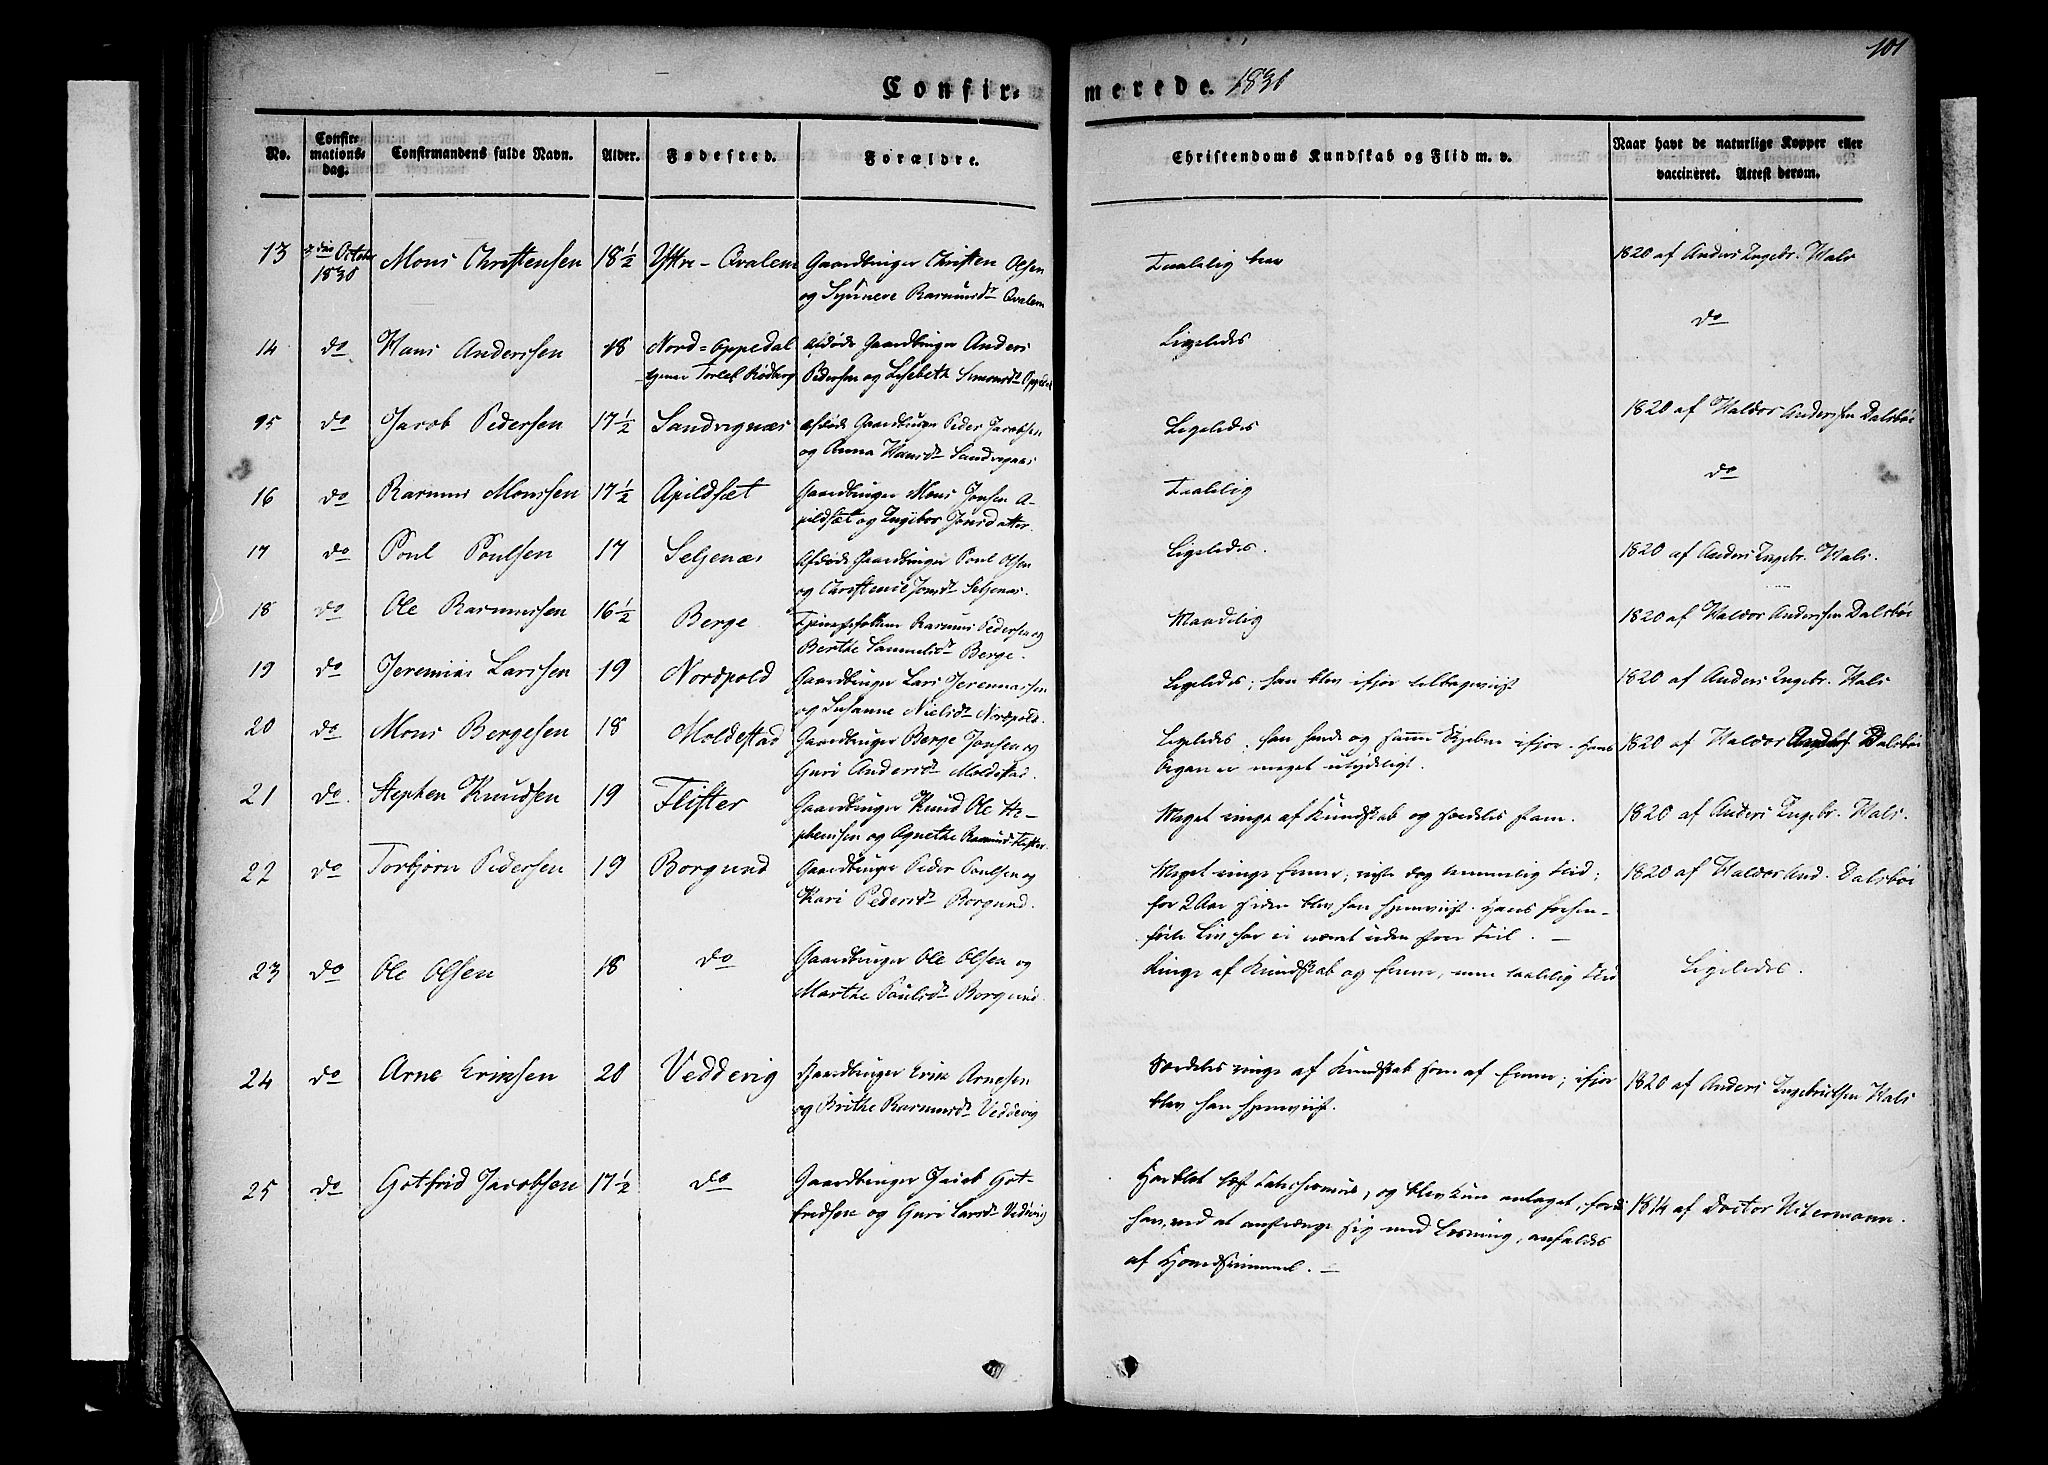 101
Confirmerede. 1830
No.
Confirmationsdag.
Confirmandens fulde Navn.
Alder.
Fødested.
Forældre.
Christendoms Kundskab og Flid m. v.
Naar havt de naturlige Kopper eller vaccineret. Attest derom.
13 3die Octobr 1830 Mons Christensen 18½ Yttre-Qvalem Gaardbruger Christen Olsen
og Synneve Rasmusdr Qvalem
Taalelig
1820 af Anders Ingebr. Hals
14 do Hans Anderssen 18 Nord-Oppedal Afdøde Gaardbruger Anders
tjener Torlef Rødberg Pederssen og Lisebeth Simonsdr Oppedal
Ligeledes
do
15 do Jacob Pederssen 17½ Sandvignæs Afdøde Gaardbruger Peder Jacobsen
og Anna Hansdr Sandvignæs
Ligeledes
1820 af Haldor Anderssen Dalsbøe
16 do Rasmus Monssen 17½ Apildsæt Gaardbruger Mons Jonsen A-
pildsæt og Ingebor Jonsdatter.
Taalelig
do
17 do Poul Poulsen 17 Seljenæs Afdøde Gaardbruger Poul Olsen
og Christense Jonsdr Seljenæs.
Ligeledes.
1820 af Anders Ingebr. Hals.
18 do Ole Rasmussen 16½ Berge Rasmus Pedersen og
Berthe Samuelsdr Berge.
Maadelig
1820 af Haldor Anderssen Dalsbøe
19 do Jeremias Larssen 19 Nordpold Gaardbruger Lars Jeremiassen
og Susanne Nielsdr Nordpold.
Ligeledes; han blev ifjor tilbageviist
1820 af Anders Ingebr. Hals
20 do Mons Bergesen 18 Moldestad Gaardbruger Berge Jonsen og
Guri Andersdr Moldestad.
Ligeledes; han havde og samme Skjebne ifjor. Hans
Organ er meget utydeligt.
1820 af Haldor Dalsbøe
21 do. Stephen Knudsen 19 Flister Gaardbruger Knud Ole Ste-
phenssen og Agnethe Rasmusdr Flister.
Meget ringe af Kundskab og
1820 af Anders Ingebr. Hals.
22 do Torbjørn Pederssen 19 Borgund Gaardbruger Peder Poulsen og
Kari Pedersdr Borgund.
Meget ringe Evner; viste dog temmelig Flid;
for 2 Aar siden blev han hjemviist. Hans
Liv har ei været uden
1820 af Haldor And. Dalsbøe
23 do Ole Olsen 18 do Gaardbruger Ole Olsen og
Marthe Poulsdr Borgund.
Ringe af Kundskab og Evner, men taalelig Flid
Ligeledes.
24 do Arne Eriksen 20 Veddevig Gaardbruger Erik Arnesen
og Brithe Rasmusdr Veddevig
Særdeles ringe af Kundskab som af Evner; ifjor
blev han hjemviist.
1820 af Anders Ingebrictsen Hals
25 do Gotfrid Jacobsen 17½ do Gaardbruger Jacob Got-
fridsen og Guri Larsdr Vedevig
Har blot læst Catechismus, og blev kun antaget, fordi
han, ved at anstrænge sig med Læsning, anfaldes
af Hovedsvimmel.
1814 af Doctor Utermann.